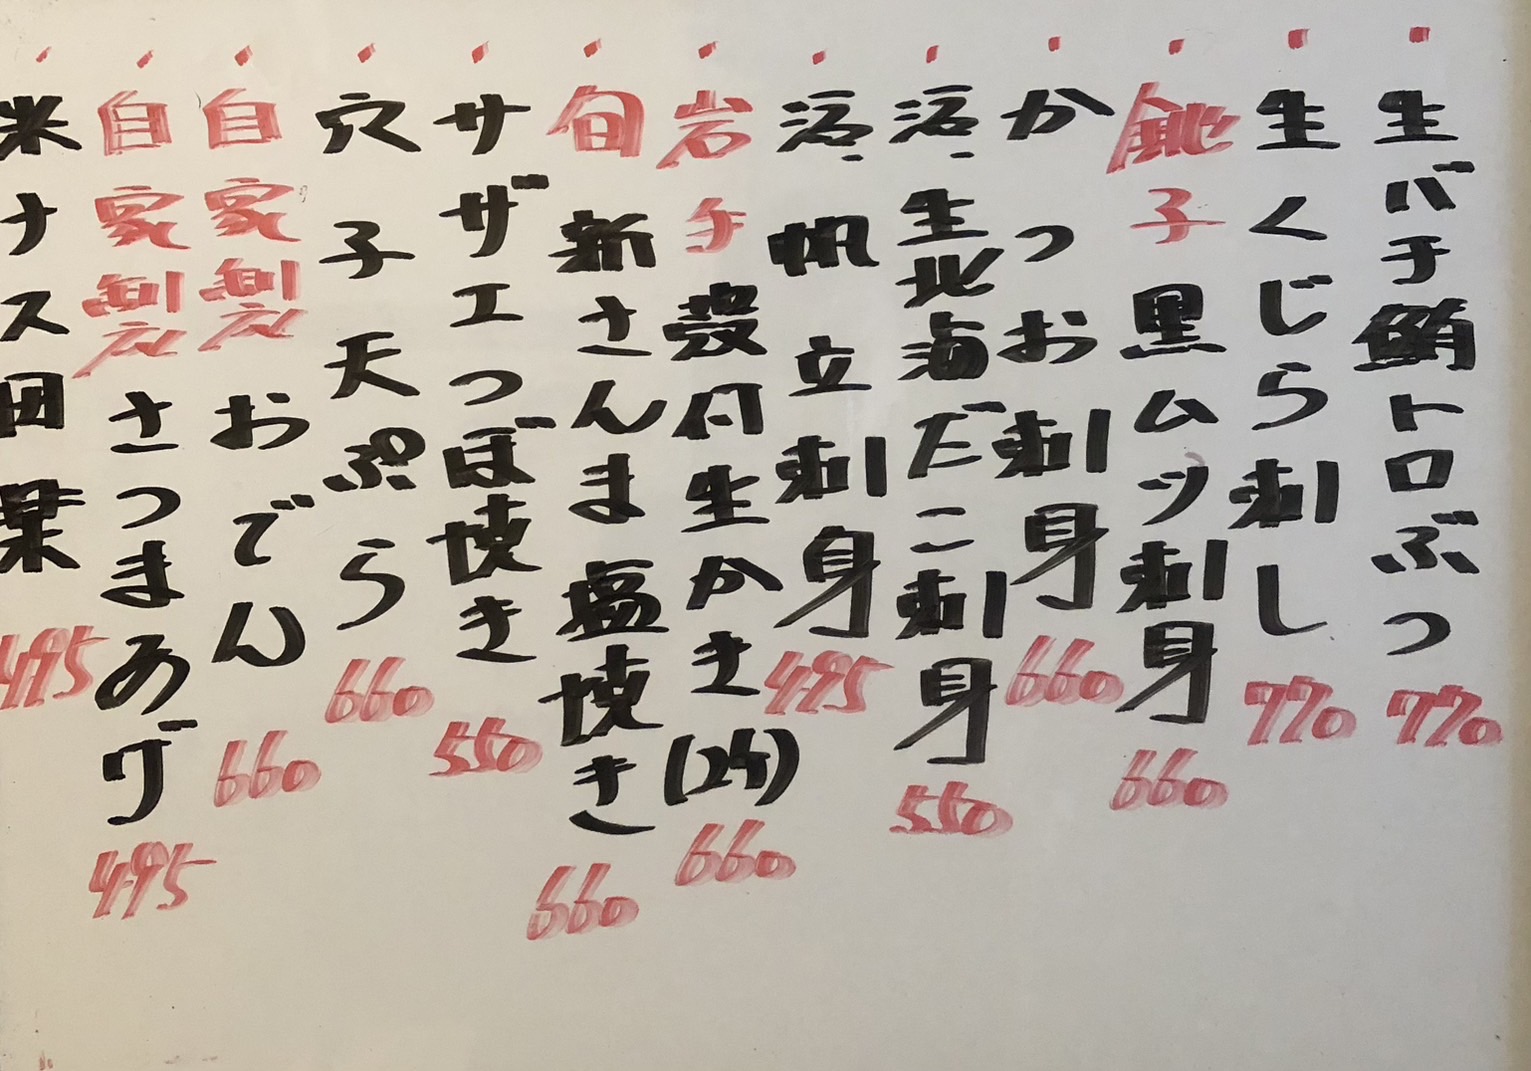 生バチ鮪トロぶつ 770
生くじら刺し 770
銚子黒ムツ刺身 660
かつお刺身 660
活生北海だこ刺身 550
活帆立刺身 495
岩手殻付生かき(2ケ) 660
旬新さんま塩焼き 660
サザエつぼ焼き 550
穴子天ぷら 660
自家製おでん 660
自家製さつまあげ 495
米ナス田楽 495